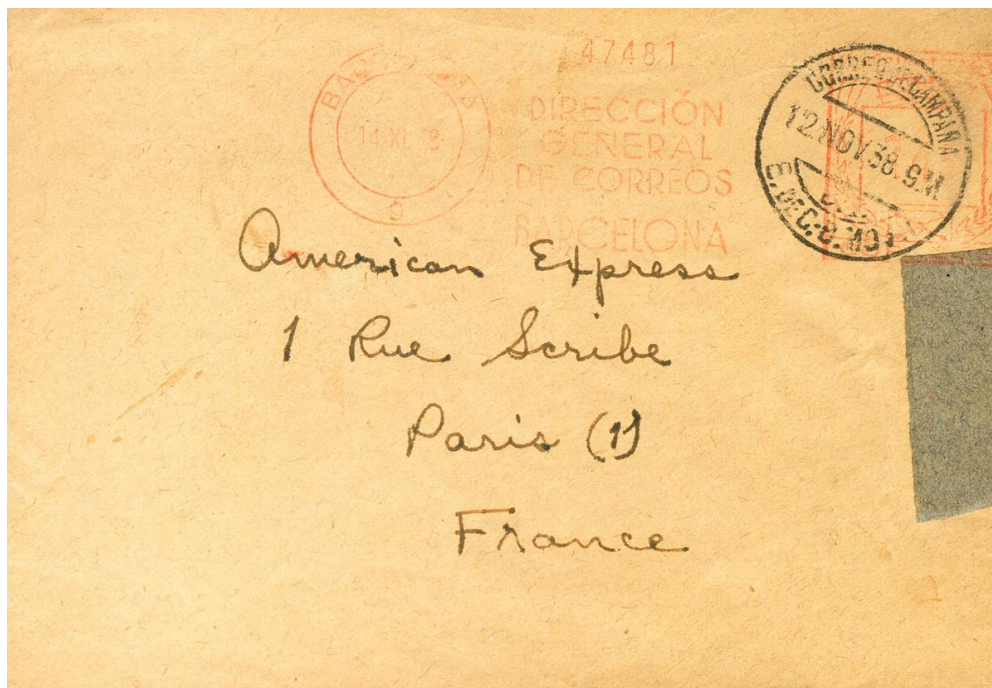 47481
DIRECCIÓN
GENERAL
DE CORREOS
BARCELONA
CORREO DE CAMPAÑA
12.NOV.38.9.M.
American Express
1 Rue Scribe
Paris (1)
France